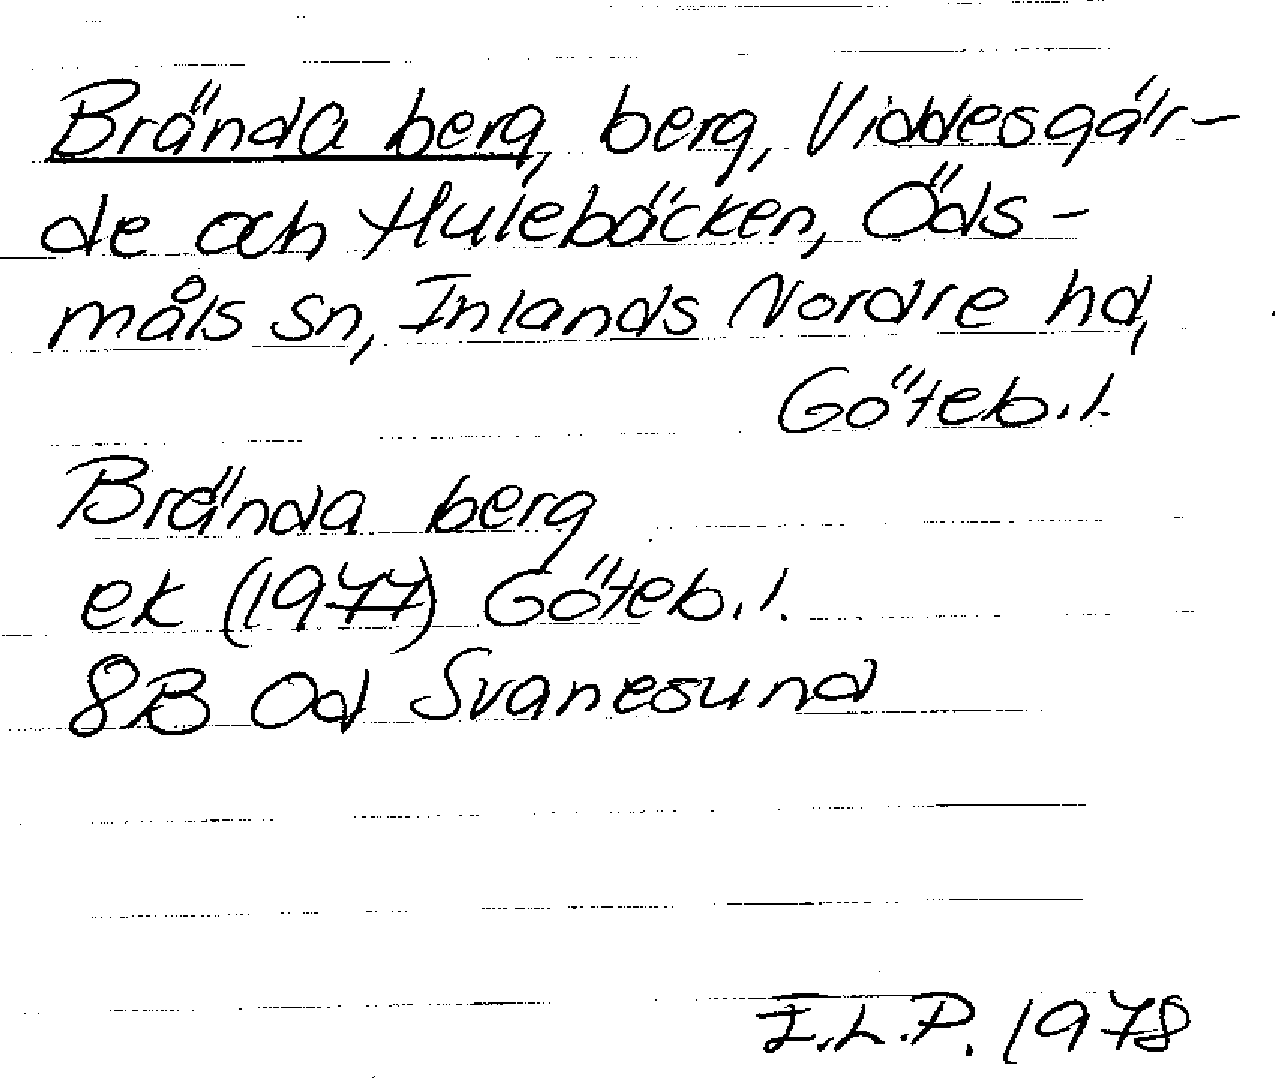 Brända berg, berg, Viddesgär-
de och Hulebäcken, Öds-
måls sn, Inlands Nordre hd,
Göteb. l.
Brända berg
ek (1977) Göteb. l.
8B 0d Svanesund
I.L.P. 1978